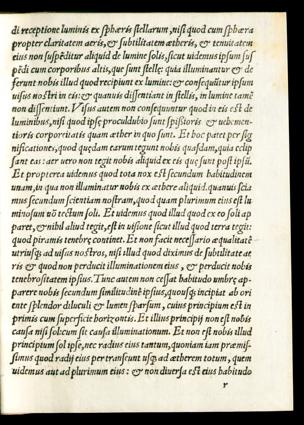 di receptione luminis ex sphæris stellarum, nisi quod cum sphæra
propter claritatem aeris, & subtilitatem ætheris, & tenuitatem
eius non suspẽditur aliquid de lumine solis, sicut uidemus ipsum sus
pẽdi cum corporibus altis, quæ sunt stellę: quia illuminantur & de
ferunt nobis illud quod recipiunt ex lumine: & consequitur ipsum
usus nostri in eis: & quamuis dissentiant in stellis, in lumine tamẽ
non dissentiunt. Visus autem non consequuntur quod in eis est de
luminibus, nisi quod ipsę proculdubio sunt spissioris & uehemen-
tioris corporitatis quam æther in quo sunt. Et hoc patet per sig
nificationes, quod quędam earum tegunt nobis quasdam, quia eclip
sant eas: aer uero non tegit nobis aliquid ex eis quę sunt post ipsũ.
Et propterea uidemus quod tota nox est secundum habitudinem
unam, in qua non illuminatur nobis ex æthere aliquid. quamuis scia
mus secundum scientiam nostram, quod quam plurimum eius est lu
minosum nõ tectum soli. Et uidemus quod illud quod ex eo soli ap
paret, & nihil aliud tegit, est in uisione sicut illud quod terra tegit:
quod piramis tenebrę continet. Et non facit necessario æqualitatẽ
utriusq; ad usus nostros, nisi illud quod diximus de subtilitate aë
ris & quod non perducit illuminationem eius, & perducit nobis
tenebrositatem ipsius. Tunc autem non cessat habitudo umbrę ap-
parere nobis secundum similitudinẽ ipsius, quousq; incipiat ab ori
ente splendor diluculi & lumen sparsum, cuius principium est in
primis cum superficie horizontis. Et illius principij non est nobis
causa nisi sol: cum sit causa illuminationum. Et non est nobis illud
principium sol ipse, nec radius eius tantum, quoniam iam præmis-
simus quod radij eius pertranseunt usq; ad ætherem totum, quem
uidemus aut ad plurimum eius: & non diuersa est eius habitudo
r